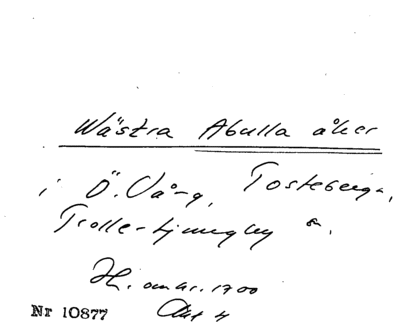 Wästra Abulla åker
i Ö. Vång, Tosteberga,
Trolle-Ljungby sn.
H. omkr. 1700
Nr 10877 Akt 4